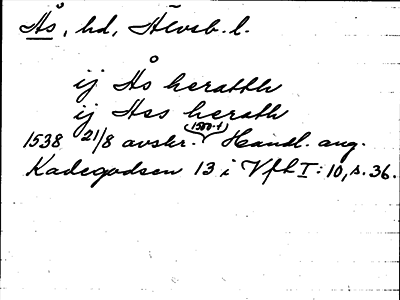 Ås, hd, Älvsb. l.
ij Ås heratth
ij Aes herath
1538 21/8 avskr. (1500-t) Handl. ang.
Kadegodsen 13 i Vfh I: 10, s. 36.